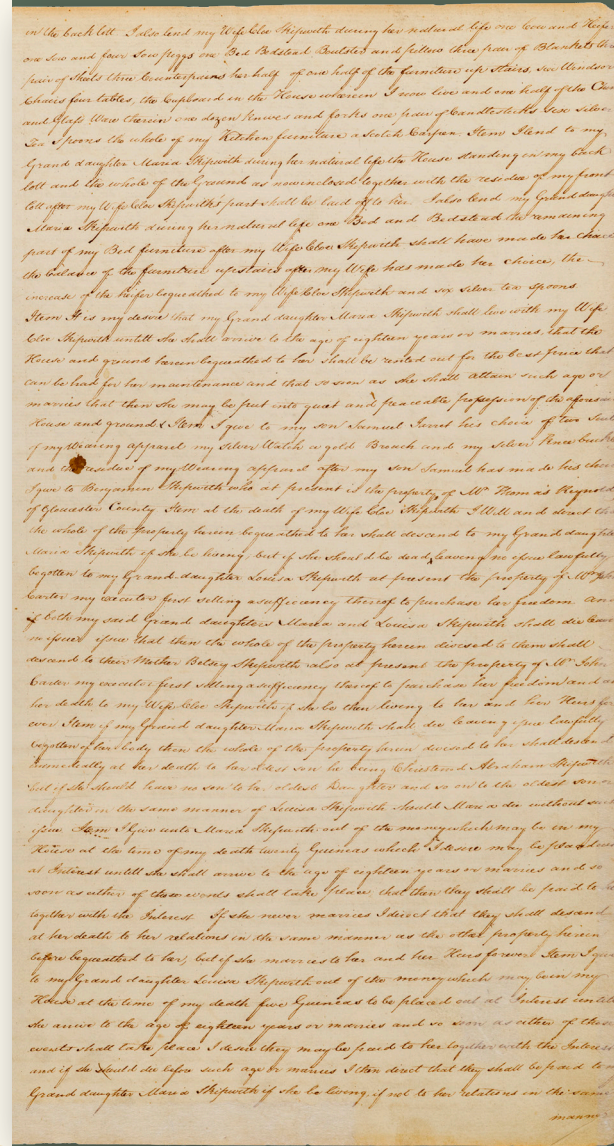 in the back lott. I also lend my Wife Cloe Skipwith during her natural life one Cow and Heifer
one Sow and four Sow piggs one Bed Bedstead Boulster and pillow three pair of Blankets
pair of Sheets three Counterpanes her half of one half of the furniture up stairs, six Windsor
Chairs four tables, the Cupboard in the House wherein I now live and one half of the
and Glass Ware therein one dozen knives and forks one pair of Candlesticks six silver
Tea Spoons the whole of my Kitchen furniture a Scotch Carpen. Item I lend to my
Grand daughter Maria Skipwith during her natural life the House standing in my back
lott and the whole of the Ground as now inclosed together with the residue of my front
lott after my Wife Cloe Skipwith's part shall be laid off to her. I also lend my Grand
Maria Skipwith during her natural life one Bed and Bedstead the remaining
part of my Bed furniture after my Wife Cloe Skipwith shall have made her choice
the balance of the furniture upstairs after my Wife has made her choice, the
increase of the heifer bequeathed to my Wife Cloe Skipwith and six silver tea spoons
Item It is my desire that my Grand daughter Maria Skipwith shall live with my Wife
Cloe Skipwith untill she shall arrive to the age of eighteen years or marries, that the
House and ground herein bequeathed to her shall be rented out for the best price that
can be had for her maintenance and that so soon as she shall attain such age or
marries that then she may be put into quiet and peaceable possession of the aforesaid
House and ground & Item I give to my son Samuel his choice of two
of my Wearing apparel my silver Watch a gold Broach and my silver knee
and the residue of my Wearing apparel after my son Samuel has made his
I give to Benjamin Skipwith who at present is the property of Mr Thomas
of Gloucester County Item at the death of my Wife Cloe Skipwith I Will and direct
the whole of the property herein bequeathed to her shall descend to my Grand daughter
Maria Skipwith if she be living, but if she should be dead leaving no issue lawfully
begotten to my Grand-daughter Louisa Skipwith at present the property of Mr
Carter my executor first selling a sufficiency thereof to purchase her freedom and
if both my said Grand daughters Maria and Louisa Skipwith shall die
issue that then the whole of the property herein devised to them shall
descend to their Mother Betsey Skipwith also at present the property of Mr John
Carter my executor first selling a sufficiency thereof to purchase her freedom and
her death to my Wife Cloe Skipwith if she be then living to her and her Heirs for
ever Item if my Grand daughter Maria Skipwith shall die leaving issue lawfully
begotten of her body then the whole of the property herein devised to her shall descend
immediately at her death to her eldest son he being Christened Abraham Skipwith
but if she should leave no son to her oldest Daughter and so on to the oldest son
daughter in the same manner of Louisa Skipwith should Maria die without such
issue Item I Give unto Maria Skipwith out of the money which may be in my
House at the time of my death twenty Guineas which I desire may be placed
at Interest untill she shall arrive to the age of eighteen years or marries and so
soon as either of those events shall take place, that then they shall be paid to
together with the Interest If she never marries I direct that they shall descend
at her death to her relations in the same manner as the other property herein
before bequeathed to her, but if she marries to her and her Heirs forever Item I give
to my Grand daughter Louisa Skipwith out of the money which may be in my
House at the time of my death five Guineas to be placed out at Interest untill
she arrive to the age of eighteen years or marries and so soon as either of those
events shall take place I desire they may be paid to her together with the Interest
and if she should die before such age or marries I then direct that they shall be paid to
Grand daughter Maria Skipwith if she be living, if not to her relations in the same
manner